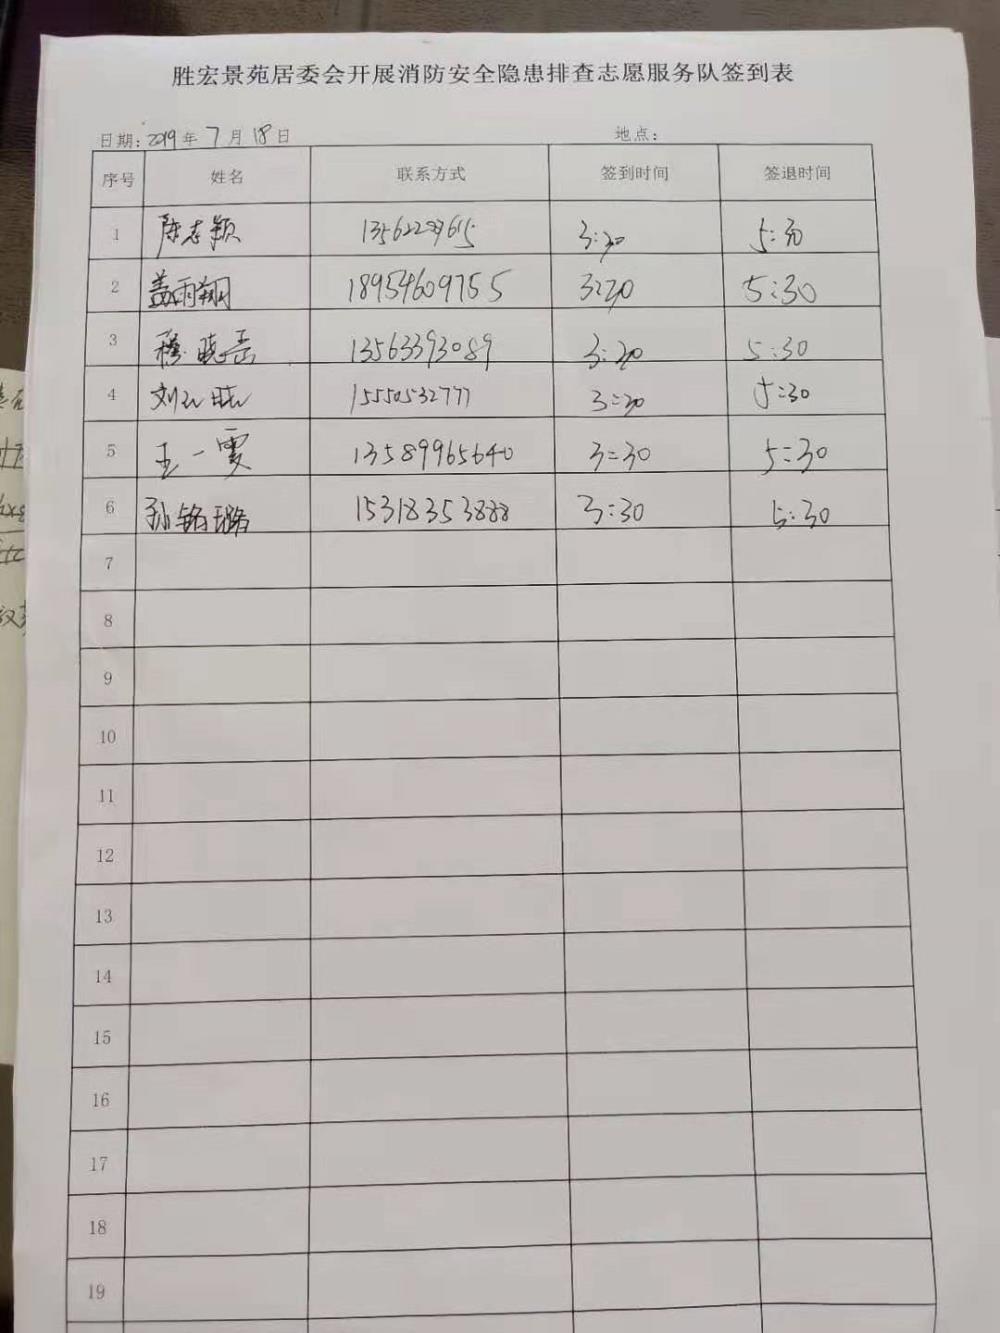 胜宏景苑居委会开展消防安全隐患排查志愿服务队签到表
日期：2019年7月18日 地点：
序号 姓名 联系方式 签到时间 签退时间
1 陈志颖 5:30
2 盖雨翔 18954609755 3:30 5:30
3 穆晓岳 13563393089 3:30 5:30
4 刘 晓 15550532777 3:30 5:30
5 王一雯 13589965640 3:30 5:30
6 孙铭璐 15318353888 3:30 5:30
7
8
9
10
11
12
13
14
15
16
17
18
19